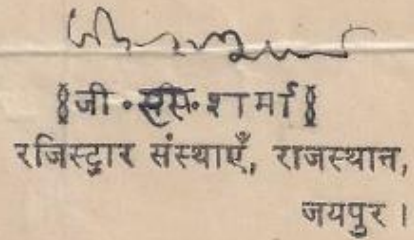 जी • सी • शर्मा
रजिस्ट्रार संस्थाएँ, राजस्थान,
जयपुर ।